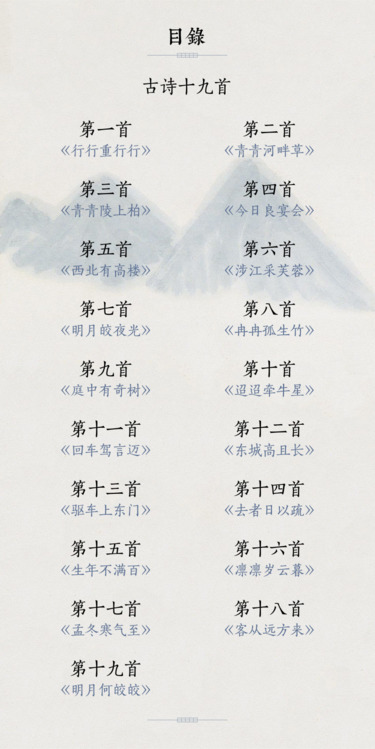 目錄
古诗十九首
第一首
《行行重行行》
第二首
《青青河畔草》
第三首
《青青陵上柏》
第四首
《今日良宴会》
第五首
《西北有高楼》
第六首
《涉江采芙蓉》
第七首
《明月皎夜光》
第八首
《冉冉孤生竹》
第九首
《庭中有奇树》
第十首
《迢迢牵牛星》
第十一首
《回车驾言迈》
第十二首
《东城高且长》
第十三首
《驱车上东门》
第十四首
《去者日以疏》
第十五首
《生年不满百》
第十六首
《凛凛岁云暮》
第十七首
《孟冬寒气至》
第十八首
《客从远方来》
第十九首
《明月何皎皎》